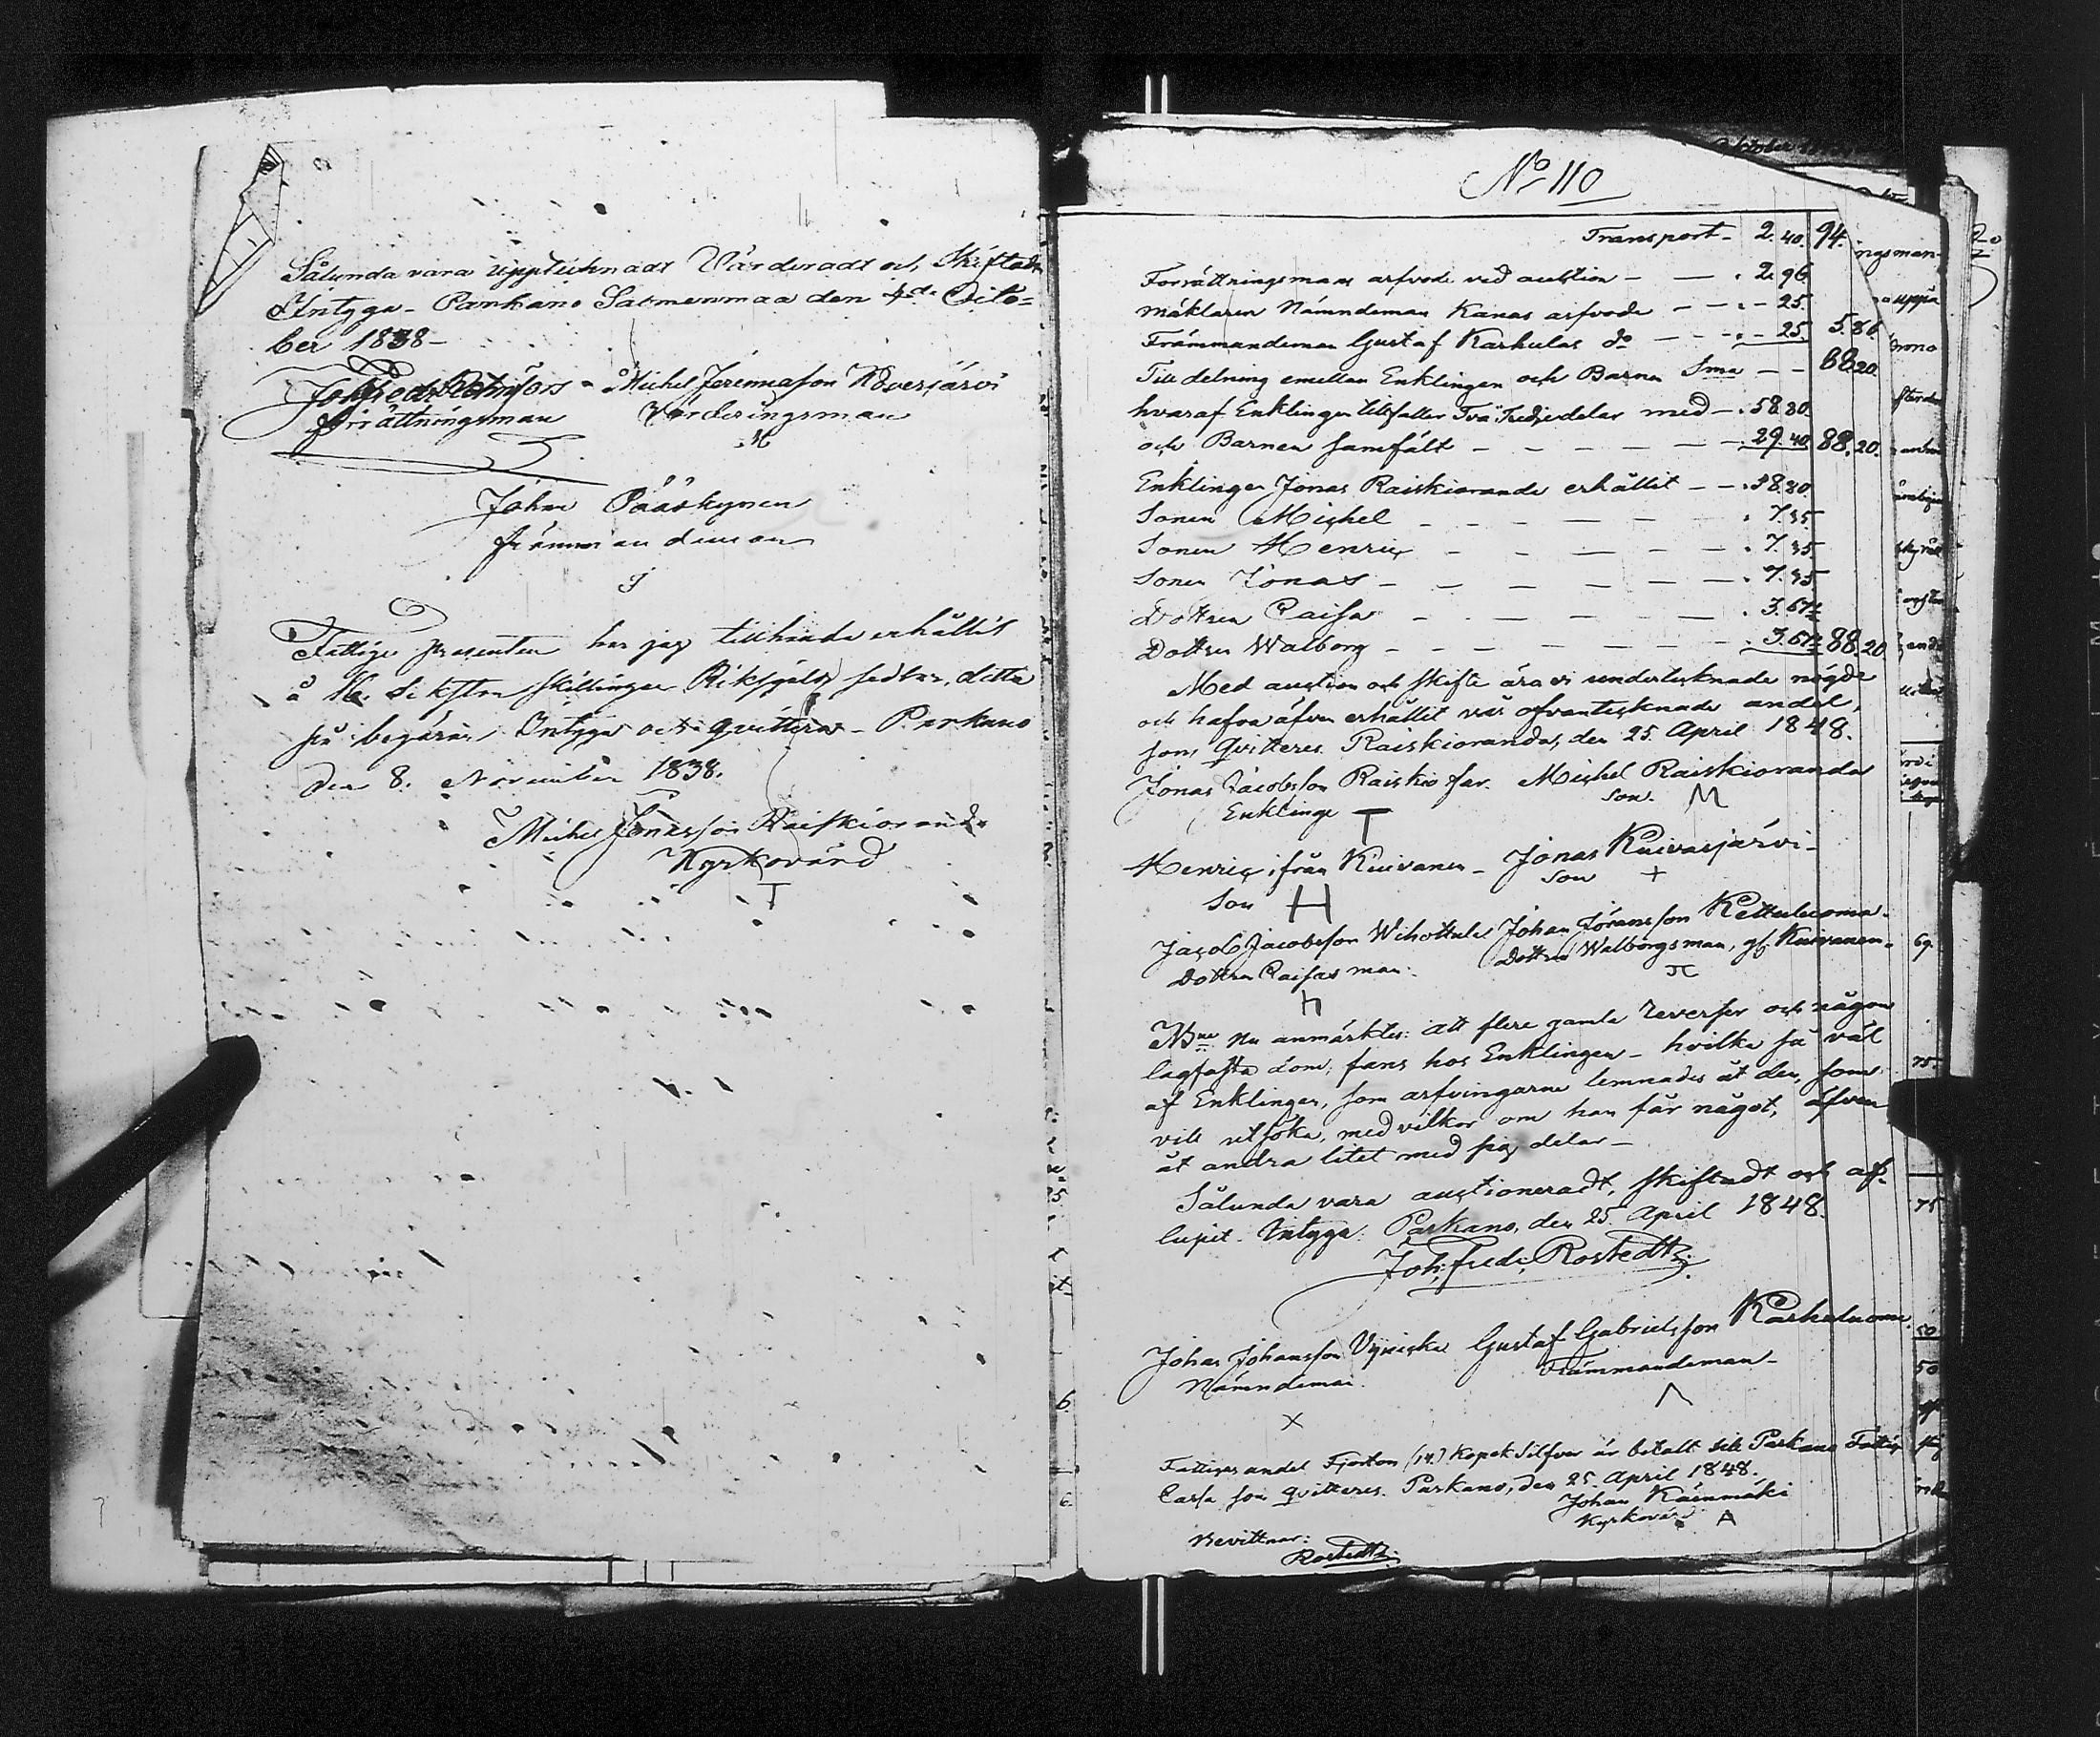 Sålunda vara upptecknadt Värderadt och Skiftadt
Intyga - Parkano Satmenmaa den 4de Octo=
ber 1838 -
Joh Fredr
Michel Jöremiasson Koversjärvi
förrättningsman
Värderingsman
Johan Pääskynen
främmandeman
Fattige procenten har jag tillhanda erhållit
å 16. Sikston skillingar Riksgäld sedlar, ditta
på begäran Intygar och qvitterar - Parkano
den 8. November 1838.
Michel Jonasson Raiskioranda
Kyrkovärd
No 110
Transport - 2.40. 94.
Förrättningsmans arfvode vid auction - — . 2.96
mäklaren Nämndeman Kanas arfvode — - - 25.
Främmandeman Gustaf Karhulas do — - - 25. 5.86.
Till delning emellan Enklingen och Barnen Sma — - 88.20.
hvaraf Enklingen tillfaller Två Tredjedelar med - . 58.80.
och Barnen samfält - - - - - 29.40 88.20.
Enklingen Jonas Raiskioranda erhållit - - . 58.80
Sonen Michel - - - - - . 7.35
Sonen Henric - - - - - . 7.35.
Sonen Jonas - - - - - - . 7.35
Dottren Caisa - - - - - . 3.67½
Dottren Walborg - - - - - - . 3.67½ 88.20
Med auction och skifte äro vi undertecknade nögde
och hafva äfven erhållit vår ofvantecknade andel,
som qvitteres Raiskioranda, den 25. April 1848.
Jonas Jacobsson Raiskio far. Michel Raiskioranda
Enklinge T
son. M
Henric ifrån Kuivanen - Jonas Kuivasjärvi -
Son H
Son +
Jacob Jacobsson Wihottula Johan Göransson Kettuluoma -
Dottren Caisas man.
Dottren Walborgs man, gf. Kuivanen -
NBne Nu anmärktes: att flere gamla reverser och någon
lagfasta dom, fans hos Enklingen - hvilka så väl
af Enklingen, som arfvingarne lemnades åt den, som
vill utsöka, med vilkor om han får något, äfven
åt andra litet med sig delar -
Sålunda vara auctioneradt, skiftadt och af-
lupit. Intyga: Parkano, den 25. April 1848.
Joh: Fredr: Rostedt.
Johan Johansson Gustaf Gabrielsson Karhuluoma.
Nämndeman.
Främmandeman -
X
Λ
Fattiges andel Fjorton (14.) Kopek Silfver är betalt till Parkano Fattig
Cassa som qvitteres. Parkano, den 25. April 1848.
Johan Käenmäki
Kyrkovärd A
Bevittnar:
Rostedt.